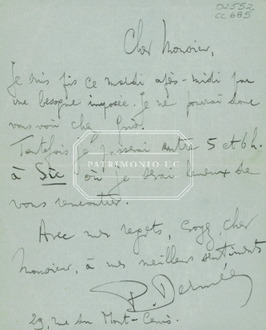 02552
CC 685
Cher Monsieur,
Je suis pris ce mardi après-midi par
une besogne imposée. Je ne pourrai donc
vous voir chez
Toutefois je passerai entre 5 et 6h.
à Sic où je serai heureux de
vous rencontrer.
PATRIMONIO UC
Avec mes regrets, croyez, cher
Monsieur, à mes meilleurs sentiments
P. Dermée
29, rue du Mont-Cenis.